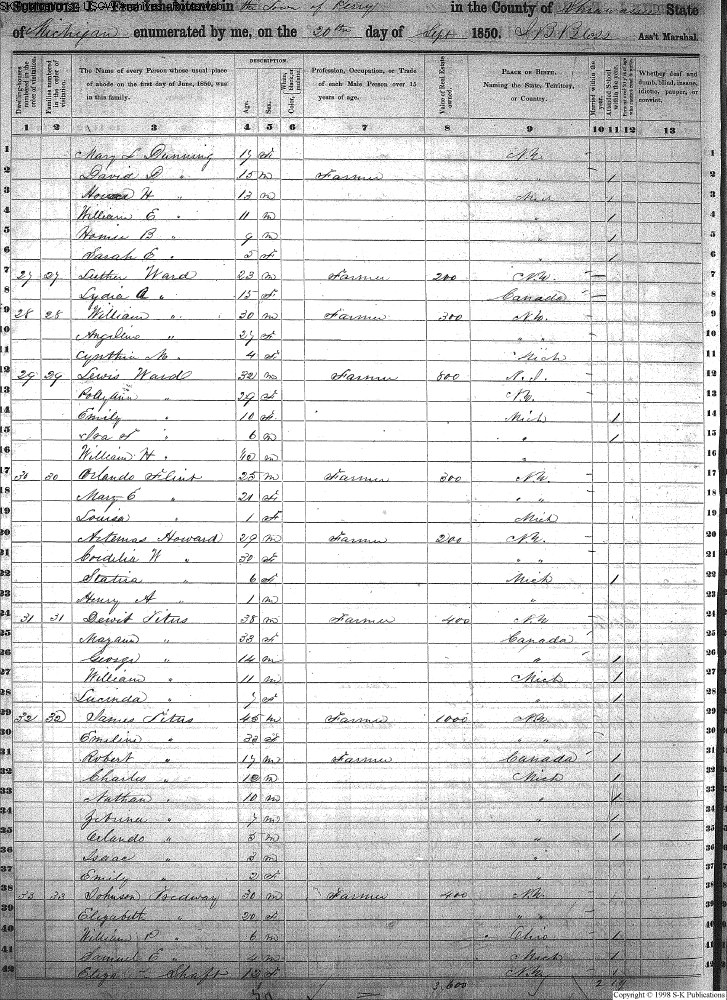 Free Inhabitants in the Town of Perry in the County of State
of Michigan enumerated by me, on the 20th day of Sept 1850. Ass't Marshal.
DESCRIPTION.
Dwelling-houses numbered in the order of visitation. Families numbered in the order of visitation. The Name of every Person whose usual place of abode on the first day of June, 1850, was in this family. Age. Sex. Color, White, black, or mulatto. Profession, Occupation, or Trade of each Male Person over 15 years of age. Value of Real Estate owned. PLACE OF BIRTH. Naming the State, Territory, or Country. Married within the year. Attended School within the year. Whether deaf and dumb, blind, insane, idiotic, pauper, or convict.
1 2 3 4 5 6 7 8 9 10 11 12 13
1 Mary L Dunning 17 F N.Y. 1
2 David D " 15 m Farmer / 2
3 H " 13 m Mich / 3
4 William E " 11 m " / 4
5 Homer B " 9 m " / 5
6 Sarah E " 5 F " / 6
7 27 27 Luther Ward 23 m Farmer 200 N.Y. 7
8 Lydia A " 15 F Canada 8
9 28 28 William " 30 m Farmer 300 N.Y. 9
10 Angeline " 27 F " " 10
11 Cynthia M " 4 F Mich 11
12 29 29 Lewis Ward 32 m Farmer 800 N.J. 12
13 Polly Ann " 29 F N.Y. 13
14 Emily " 10 F Mich / 14
15 Ira " 6 m " / 15
16 William H " m " 16
17 30 30 Orlando Flint 25 m Farmer 300 N.Y. 17
18 Mary E " 21 F " " 18
19 Louisa " 1 F Mich 19
20 Artemas Howard 29 m Farmer 200 N.Y. 20
21 Cordelia W " 30 F " " 21
22 Statira " 6 F Mich / 22
23 Henry A " 1 m " 23
24 31 31 Dewit Titus 38 m Farmer 400 N.Y. 24
25 Maryann " 33 F Canada 25
26 George " 14 m " / 26
27 William " 11 m Mich / 27
28 Lucinda " 7 F " / 28
29 32 32 James Titus 45 m Farmer 1000 N.Y. 29
30 Emeline " 33 F " " 30
31 Robert " 17 m Farmer Canada / 31
32 Charles " m Mich / 32
33 Nathan " 10 m " / 33
34 " 7 m " / 34
35 Orlando " 5 m " / 35
36 Isaac " 3 m " 36
37 Emily " 2 F " 37
38 33 33 Johnson 30 m Farmer 400 N.Y. 38
39 Elizabeth " 20 F " " 39
40 William P " 6 m Ohio / 40
41 Samuel E " 4 m Mich / 41
42 Eliza Shaft F N.Y. 42
3,600
Copyright © 1998 S-K Publications